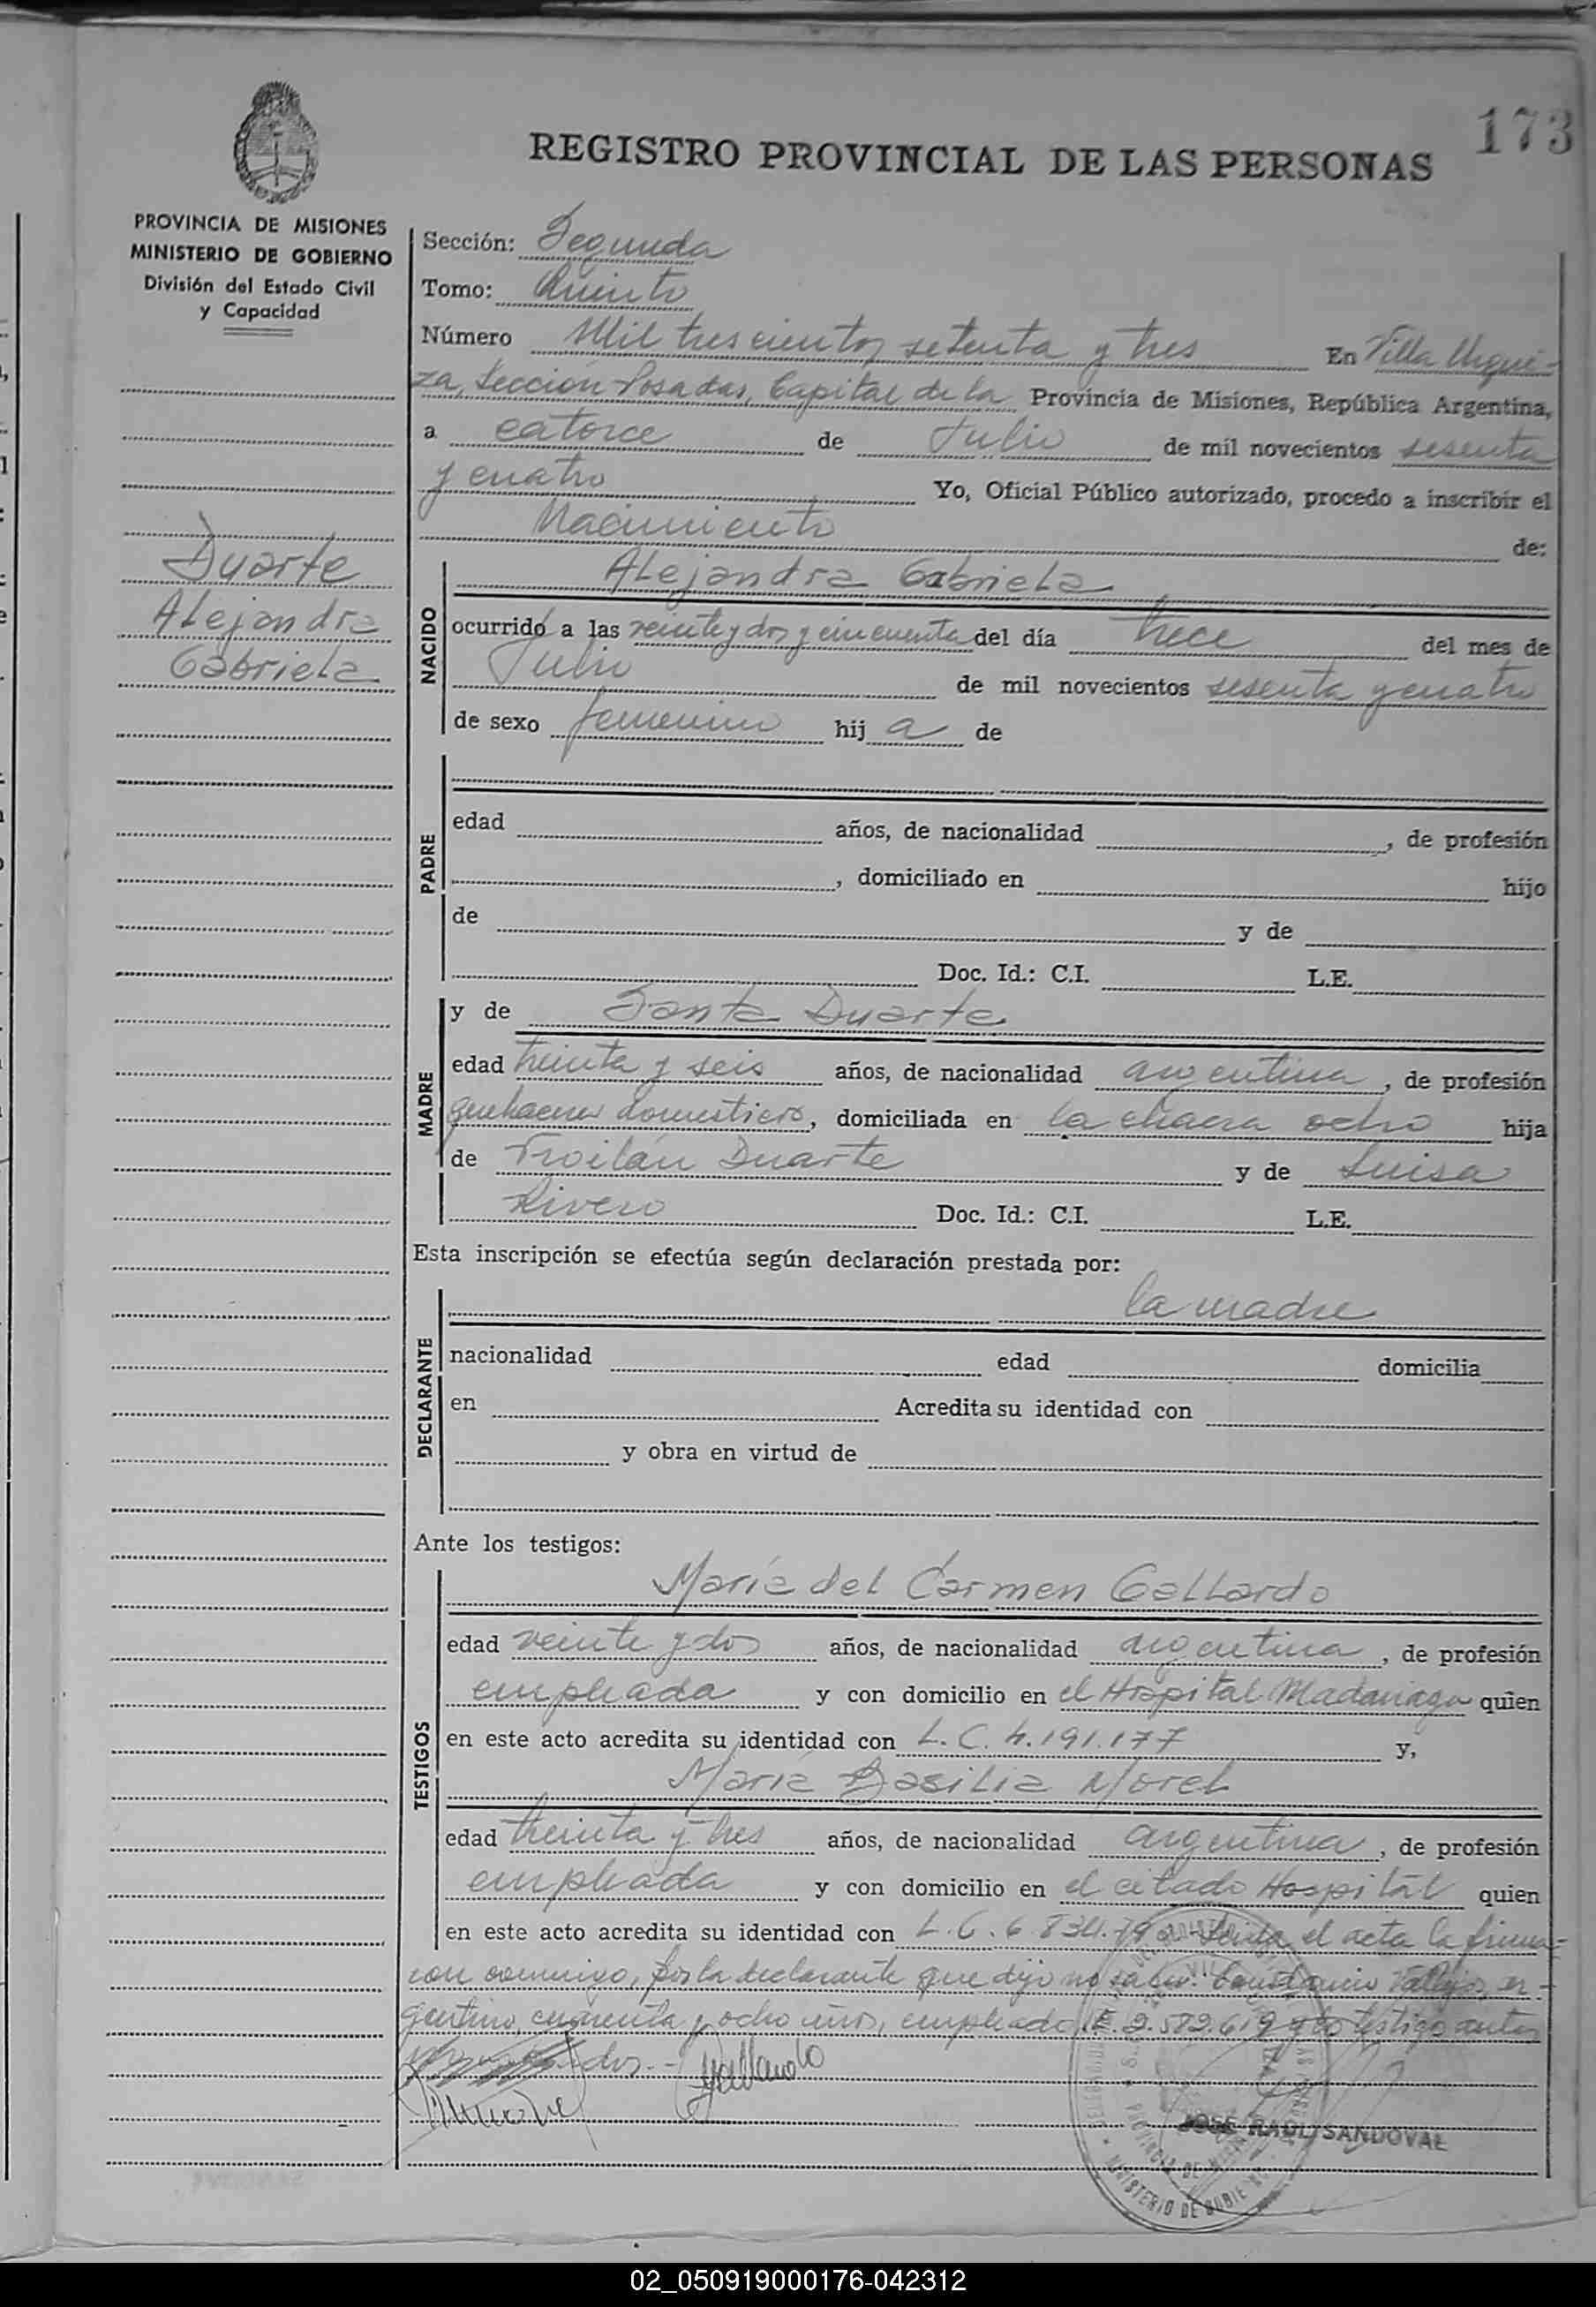 173
REGISTRO PROVINCIAL DE LAS PERSONAS
PROVINCIA DE MISIONES
MINISTERIO DE GOBIERNO
División del Estado Civil
y Capacidad
Duarte
Alejandra
Gabriela
Sección: Segunda
Tomo: Quinto
Número Mil trescientos setenta y tres En Villa Urqui-
za, Sección Posadas, Capital de la Provincia de Misiones, República Argentina,
a catorce de Julio de mil novecientos sesenta
y cuatro Yo, Oficial Público autorizado, procedo a inscribir el
Nacimiento de:
NACIDO
Alejandra Gabriela
ocurrido a las veinte y dos y cincuenta del día trece del mes de
Julio de mil novecientos sesenta y cuatro
de sexo femenino hij a de
PADRE
edad años, de nacionalidad , de profesión
, domiciliado en hijo
de y de
Doc. Id.: C.I. L.E.
MADRE
y de Santa Duarte
edad treinta y seis años, de nacionalidad argentina, de profesión
quehaceres domesticos, domiciliada en la chacra ocho hija
de Troilán Duarte y de Luisa
Rivero Doc. Id.: C.I. L.E.
Esta inscripción se efectúa según declaración prestada por:
DECLARANTE
la madre
nacionalidad edad domicilia
en Acredita su identidad con
y obra en virtud de
Ante los testigos:
TESTIGOS
María del Carmen Gallardo
edad veinte y dos años, de nacionalidad argentina, de profesión
empleada y con domicilio en el Hospital Madariaga quien
en este acto acredita su identidad con L.C. 4.191.177 y,
María Basilia Morel
edad treinta y tres años, de nacionalidad argentina, de profesión
empleada y con domicilio en el citado Hospital quien
en este acto acredita su identidad con L.C. 6.834. el acta la firma-
con conmigo, por la declarante que dijo no saber: Constancio Vallejos, ar-
gentino, cuarenta y ocho años, empleado, 2.582.619 y testigo antes
dos.-
Gallardo
JOSE RAUL SANDOVAL
MINISTERIO DE GOBIE
PROVINCIA DE
02_050919000176-042312